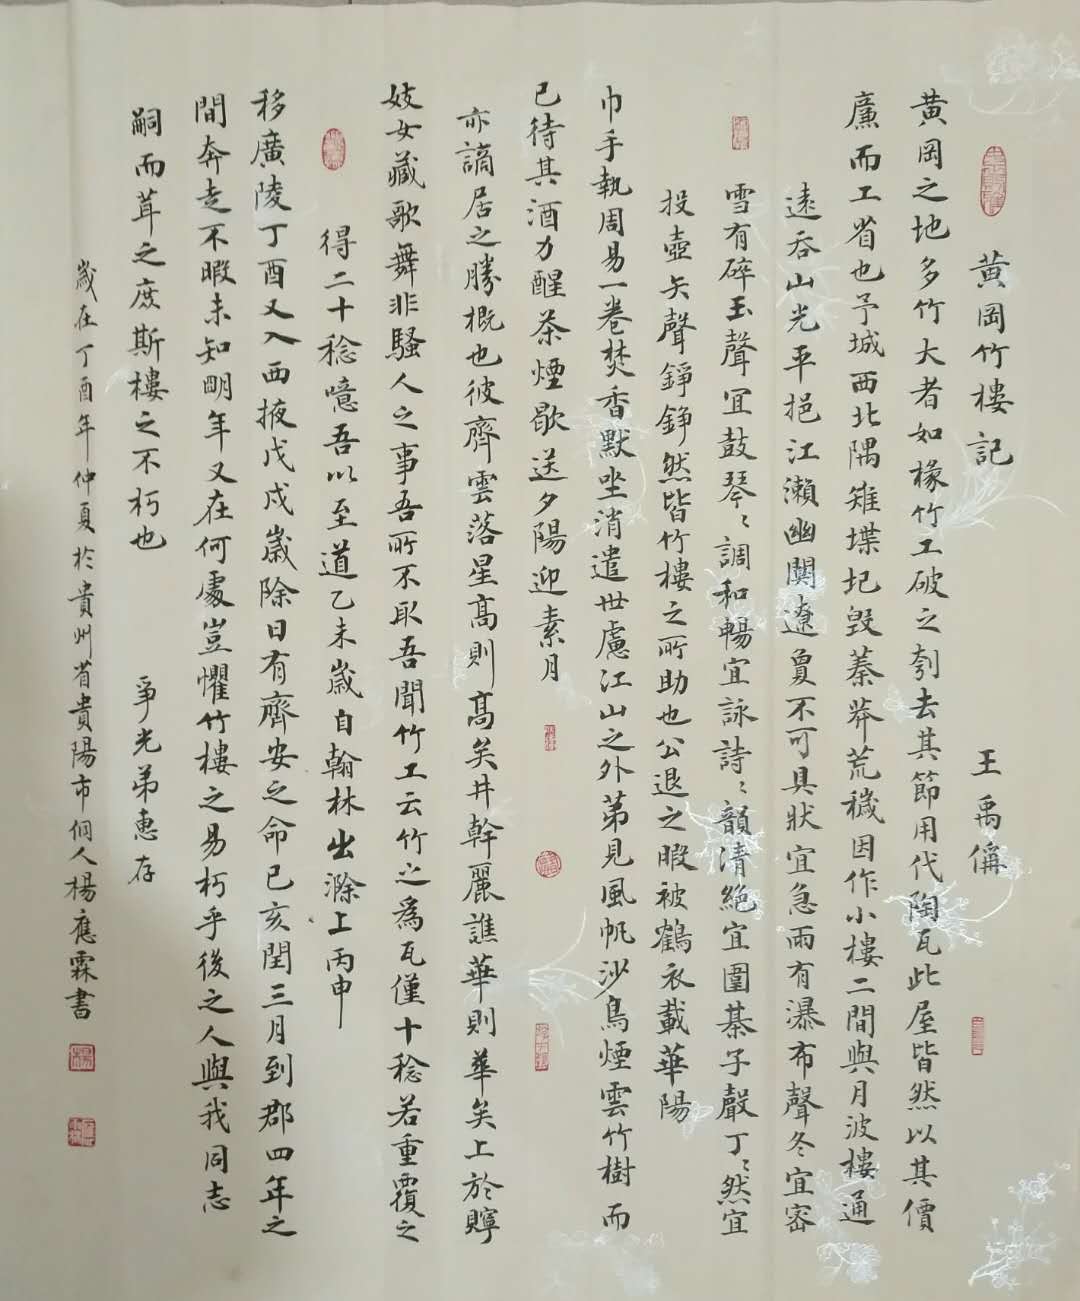 黃岡竹樓記 王禹偁
黃岡之地多竹大者如椽竹工破之刳去其節用代陶瓦比屋皆然以其價
廉而工省也予城西北隅雉堞圮毀蓁莽荒穢因作小樓二間與月波樓通
遠吞山光平挹江瀨幽闃遼敻不可具狀宜急雨有瀑布聲冬宜密
雪有碎玉聲宜鼓琴〻調和暢宜詠詩〻韻清絕宜圍棊子聲丁〻然宜
投壺矢聲錚錚然皆竹樓之所助也公退之暇被鶴衣載華陽
巾手執周易一卷焚香默坐消遣世慮江山之外苐見風帆沙鳥煙雲竹樹而
已待其酒力醒茶煙歇送夕陽迎素月
亦謫居之勝概也彼齊雲落星高則高矣井幹麗譙華則華矣止於貯
妓女藏歌舞非騷人之事吾所不取吾聞竹工云竹之為瓦僅十稔若重覆之
得二十稔噫吾以至道乙未歲自翰林出滁上丙申
移廣陵丁酉又入西掖戊戌歲除日有齊安之命己亥閏三月到郡四年之
間奔走不暇未知明年又在何處豈懼竹樓之易朽乎後之人與我同志
嗣而葺之庶斯樓之不朽也 爭光弟惠存
歲在丁酉年仲夏於貴州省貴陽市侗人楊應霖書